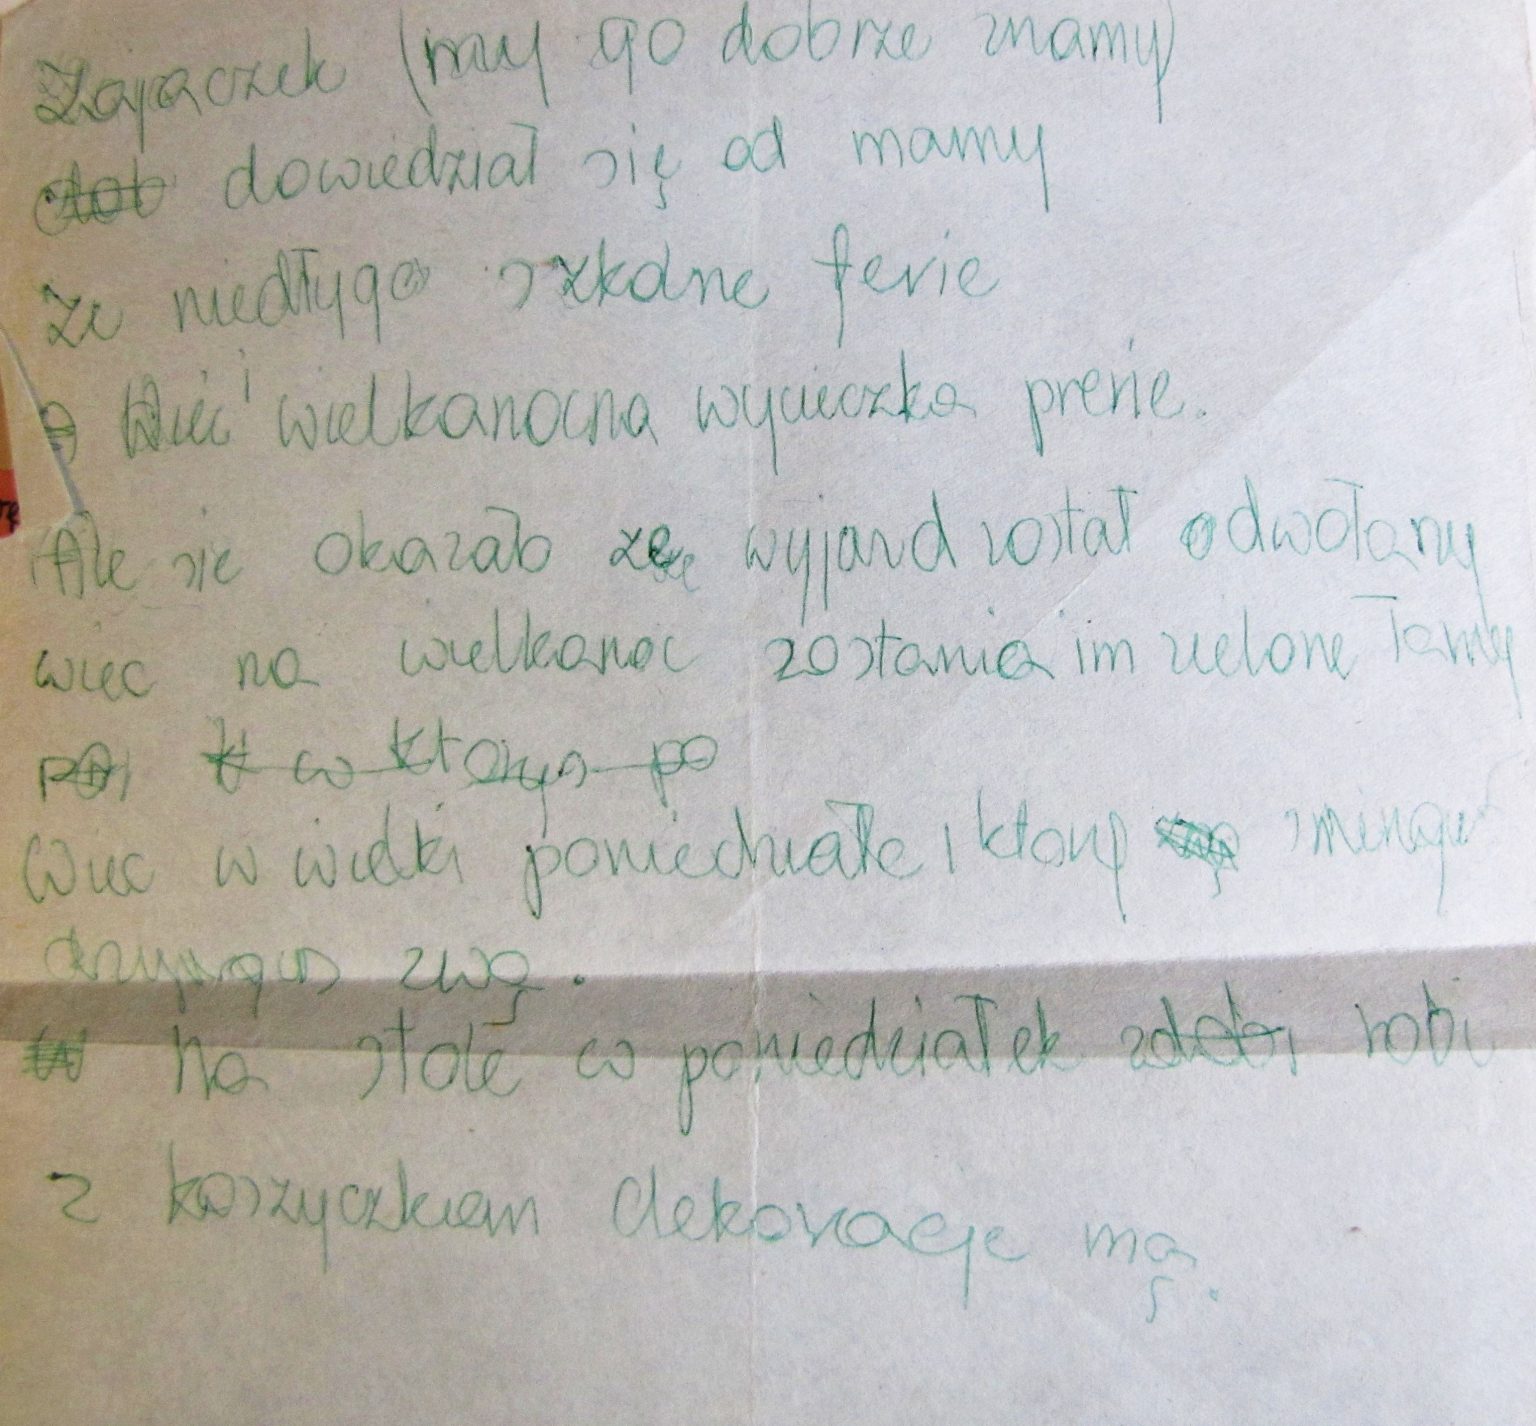 Zajączek (my go dobrze znamy)
dowiedział się od mamy
że niedługo szkolne ferie
Więc i wielkanocna wycieczka prerie.
Ale sie okazało że wyjazd został odwołany
wiec na wielkanoc zostania im zielone łamy
w któryś po
Wiec w wielki poniedziałek który śmingus
dzyngus zwą.
Na stole w poniedziałek robi
z koszyczkiem dekoracje mą.